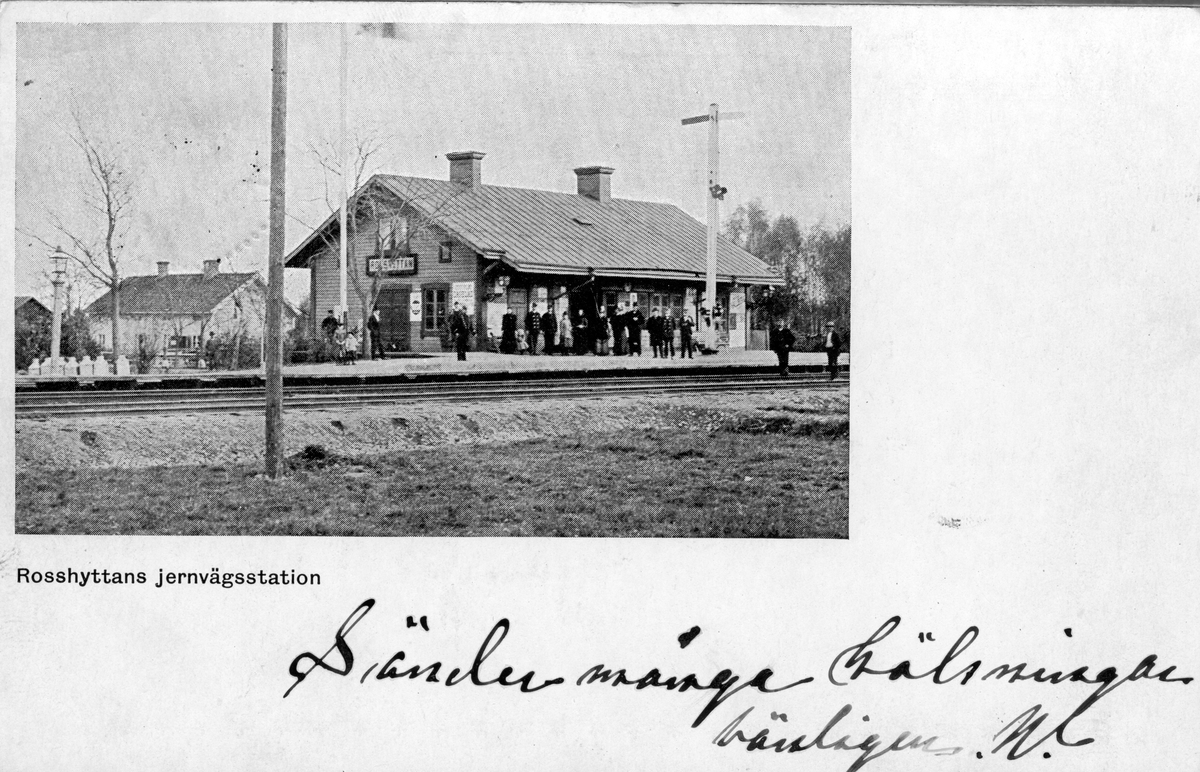 ROSSHYTTAN
Rosshyttans jernvägsstation
Sänder många hälsningar
vänligen. W.